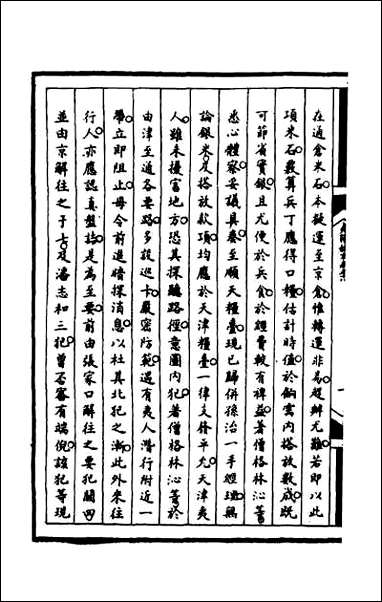 在通倉米石本擬運至京倉惟轉運非易趕辦尤難若即以此
項米石覈算兵丁應得口糧估計時值於餉雲內搭放數成既
可節省實銀且尤便於兵食於經費較有裨益著僧格林沁等
悉心體察妥議具奏至順天糧臺現已歸併孫治一手經理無
論銀米及搭放款項均應於天津糧臺一律支發平允天津夷
人雖未擾害地方恐其探聽路徑意圖內犯著僧格林沁等於
由津至通各要路多設巡卡嚴密防範遇有夷人潛行附近一
帶立即阻止毋令前進暗探消息以杜其北犯之漸此外來往
行人亦應認真盤詰是為至要前由張家口解往之要犯關四
並由京解往之于士及潘志和三犯曾否審有端倪該犯等現